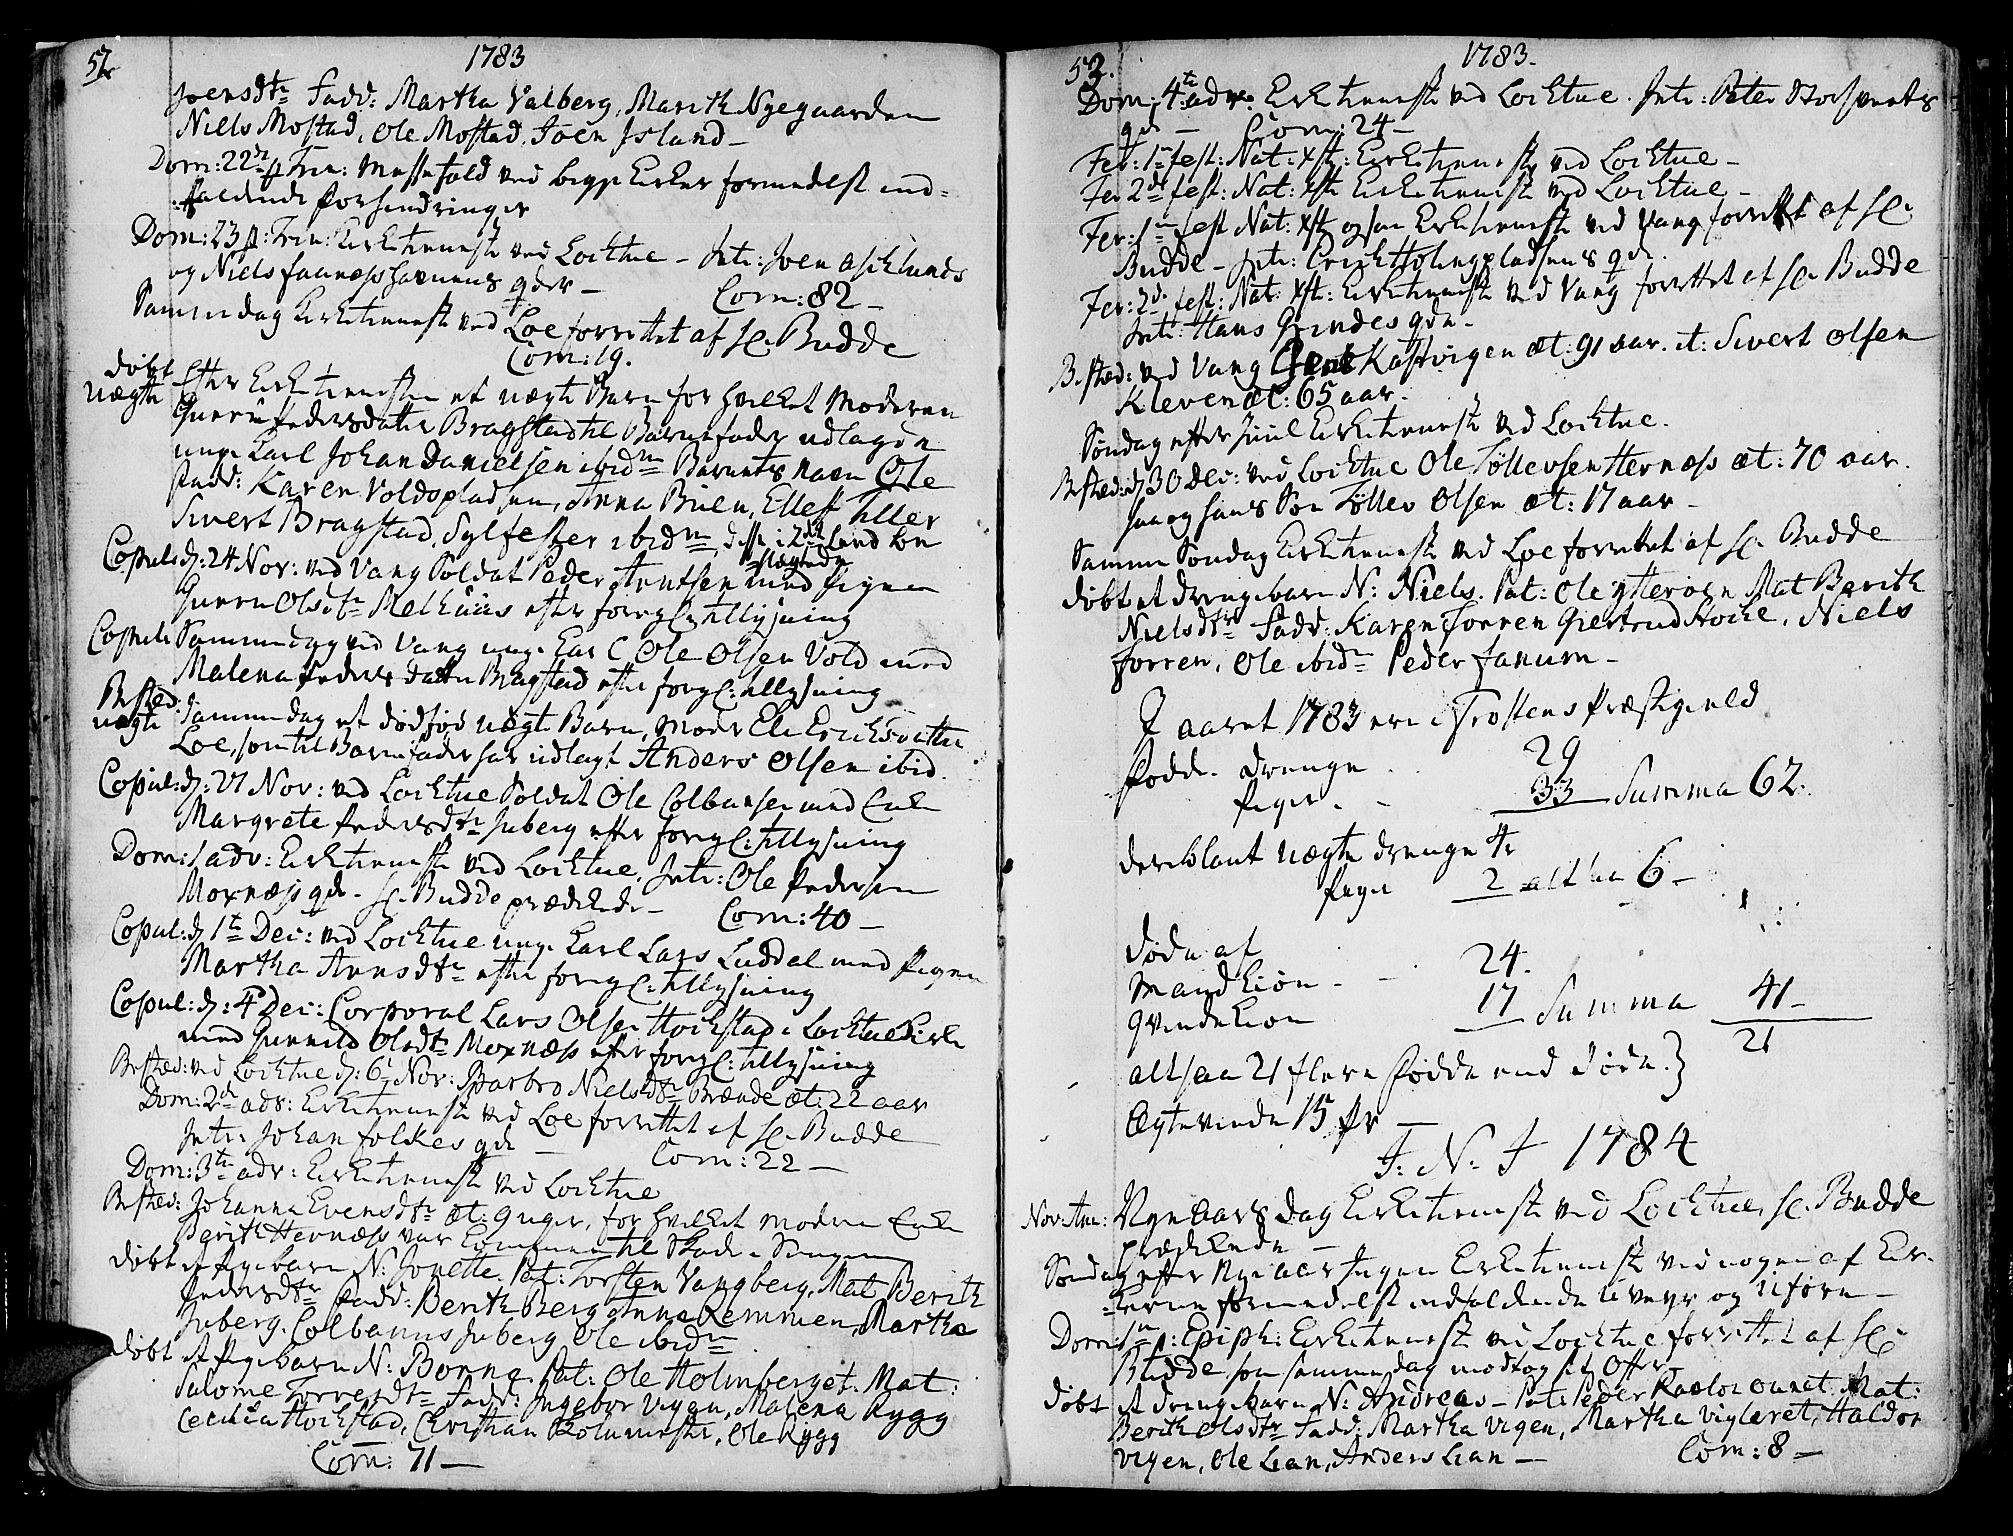 52
1783
Joensdtr Fadd: Martha Valberg, Marith Nyegaarden
Niels Mostad, Ole Mostad, Joen Island –
Dom: 22de p. Trin: Messefald ved begge Kirker formedelst ind=
faldende forhindringer
Dom: 23 p: Trin: Kirketieneste ved Lochtue – Intr: Joen Aschlunds
og Niels Faanæsshavnens qder – Com: 82 –
Samme dag Kirketieneste ved Loe forrettet af Hr. Budde
Com: 19.
døbt
uægte
efter Kirketienesten et uægte Barn for hvilket Moderen
Guerru Pedersdatter Bragstad til Barnefader udlagde
unge Karl Johan Danielsen ibidm Barnets Navn Ole
Fadd: Karen Voldspladsen, Anna Buen, Ellef Tiller
Sivert Bragstad, Sylfester ibidm, disse i 2det Leed be
slægtede
Copul: d: 24 Nov: ved Vang Soldat Peder Arntsen med Pigen
Guerru Olsdtr Melhuus efter foreg: tillysning
Copul: Samme dag ved Vang unge Karl Ole Olsen Vold med
Malena Pedersdatter Bragstad efter foreg: tillysning
Bested:
uægte
Samme dag et dødfød uægte Barn, Moder Eli Erichsdatter
Loe, som til Barnefader har udlagt Anders Olsen ibid.
Copul: d: 27 Nov: ved Lochtue Soldat Ole Colbansen med Enke
Margrete Pedersdtr Juberg efter foreg: tillysning
Dom: 1 adv: Kirketieneste ved Lochtue, Intr: Ole Pedersen
Moxnæss qde. Hr. Budde prædikede – Com: 40 –
Copul: d 1te Dec: ved Lochtue unge Karl Lars Luddal med Pigen
Martha Arnsdtr efter foreg: tillysning
Copul: d: 4de Dec: Corporal Lars Olsen Hochstad i Lochtue Kirke
med Gunnild Olsdtr Moxnæss efter foreg: tillysning
Bested: ved Lochtue d: 6te Nov: Barbro Nielsdtr Brænde æt: 22 aar
Dom: 2de adv: Kirketieneste ved Loe forrettet af Hr. Budde
Intr: Johan Folkes qde – Com: 22 –
Dom: 3te adv: Kirketieneste ved Lochtue
Bested: Johanna Evensdtr æt: 9 uger, for hvilket Moderen Enke
Berith Hernæss var kommen til Skade i Sengen
døbt et Pigebarn N: Jonette. Pat: Torsten Vangberg, Mat Berith
Pedersdtr Fadd: Berith Berg Anne Remmen, Martha
Juberg, Colbanus Juberg, Ole ibidm
døbt et Pigebarn N: Borne. Pat: Ole Holmberget. Mat:
Salome Torresdtr Fadd: Ingebor Vigen, Malena Rygg
Cecilia Hochstad, Christian Skolemester, Ole Rygg
Com: 71 –
53.
1783.
Dom: 4te adv. Kirketieneste ved Lochtue. Intr: Peter Storsvents
qde – Com: 24 –
Fer: 1ma fest: Nat: Xsti: Kirketieneste ved Lochtue –
Fer 2de fest: Nat: Xsti Kirketieneste ved Lochtue –
Fer: 1ma fest Nat: Xsti ogsaa Kirketieneste ved Vang forrettet af Hr.
Budde – Intr: Erich Holingpladsens qde.
Fer: 2de fest: Nat: Xsti: Kirketieneste ved Vang forrettet af Hr Budde
Intr: Hans Grindes qde.
Bested: ved Vang Gent Kastvigen æt: 91 aar. it: Sivert Olsen
Kleven æt: 65 aar.
Søndag efter Juul Kirketieneste ved Lochtue.
Bested: d 30 Dec: ved Lochtue Ole Tøllevsen Hernæss æt: 70 aar.
saa og hans Søn Tøllev Olsen æt: 17 aar –
Samme Søndag Kirketieneste ved Loe forrettet af Hr Budde
døbt et drengebarn N: Niels. Pat: Ole Ytterøen Mat Berith
Nielsdtr Fadd: Karen Forren Giertrud Hocke, Niels
Forren, Ole ibidm Peder Fanum –
I aaret 1783 ere i Frostens Præstegield
fødde. drenge. 29
Piger. - 33 Summa 62.
deriblant uægte drenge 4
Piger 2 alt saa 6 –
døde af
Mandkiøn - - 24.
Qvindekiøn 17 Summa 41 –
21
altsaa 21 flere fødde end døde.
Ægteviede 15 Pr –
I: N: J 1784
Nov: Ann: Nye Aars dag Kirketieneste ved Lochtue, Hr. Budde
prædikede –
Søndag efter Nye aar Ingen Kirketieneste ved nogen af Kir-
kerne formedelst indfaldende uveyr og Uføre –
Dom: 1ma p: Epiph: Kirketieneste ved Lochtue forrettet af Hr
Budde som samme dag modtog sit Offer
døbt et drengebarn N: Andreas – Pat: Peder Mat:
Berith Olsdtr Fadd: Martha Vigen, Martha Viglæret, Haldor
Vigen, Ole Lian, Anders Lian – Com: 8 –